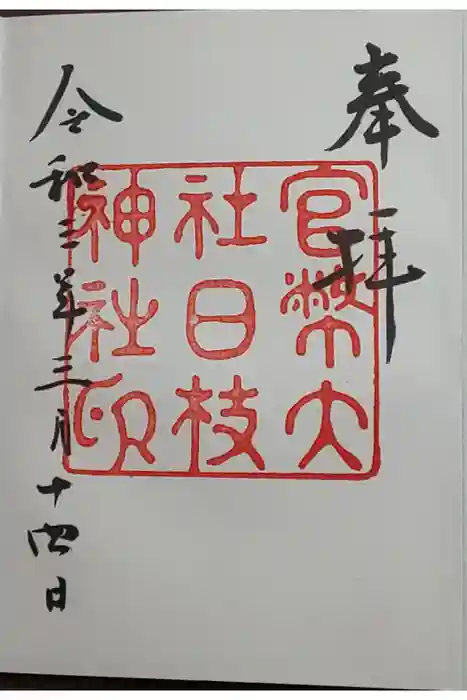 奉拝
官幣大
社日枝
神社印
令和三年三月十四日